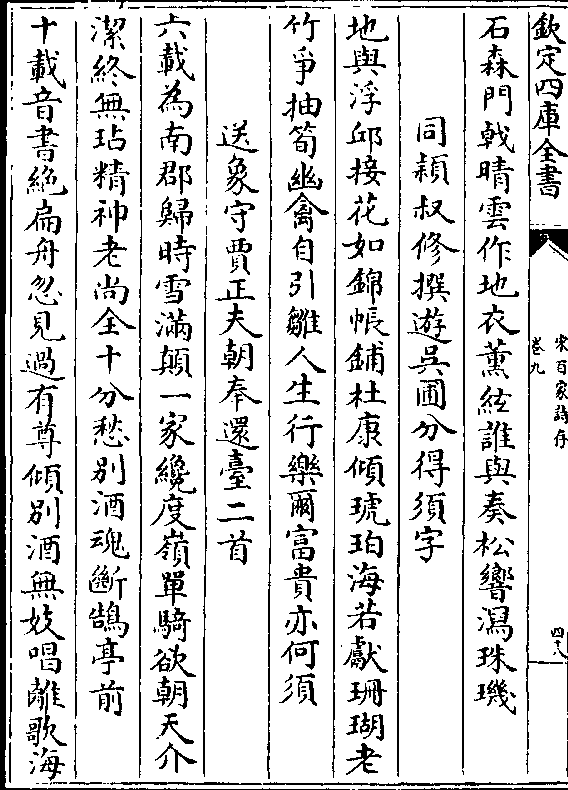 欽定四庫全書
宋百家詩存
卷九
四八
石森門戟晴雲作地衣薰絃誰與奏松響瀉珠璣
同穎叔修撰遊吳圃分得須字
地與浮邱接花如錦帳鋪杜康傾琥珀海若獻珊瑚老
竹爭抽筍幽禽自引雛人生行樂爾富貴亦何須
送象守賈正夫朝奉還臺二首
六載為南郡歸時雪滿顛一家纔度嶺單騎欲朝天介
潔終無玷精神老尚全十分愁別酒魂斷鵠亭前
十載音書絶扁舟忽見過有尊傾別酒無妓唱離歌海